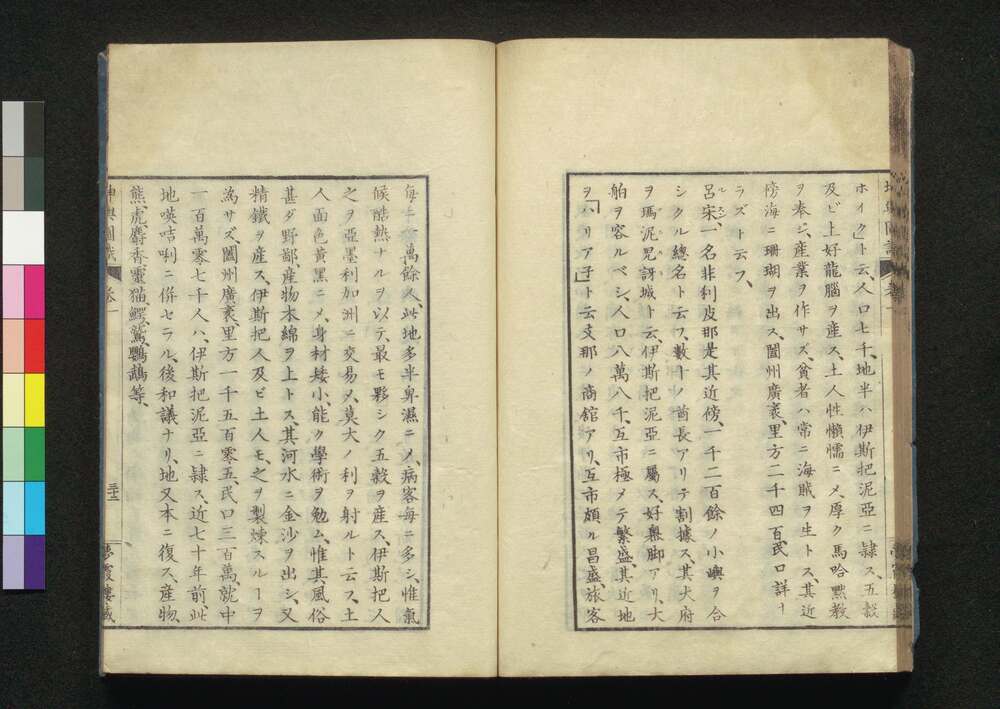 ホイクト云、人口七千、地半ハ伊斯把泥亞ニ隷ス、五穀
及ビ上好龍腦ヲ産ス、土人性懶惰ニメ、厚ク馬哈黙教
ヲ奉ジ、産業ヲ作サズ、貧者ハ常ニ海賊ヲ生トス、其近
傍海ニ珊瑚ヲ出ス、闔州廣袤、里方二千四百、民口詳ナ
ラズト云フ、
呂宋、一名非利皮那是其近傍、一千二百餘ノ小嶼ヲ合
シクル總名ト云フ、數十ノ酋長アリテ割據ス、其大府
ヲ瑪泥児訝城ト云、伊斯把泥亞ニ屬ス、好擧脚アリ、大
舶ヲ容ルベシ、人口八萬八千、互市極メテ繁盛、其近地
ヲハリアチト云、支那ノ商館アリ、互市頗ル昌盛、旅客
毎年 萬餘人、此地多半卑濕ニメ、病客毎ニ多シ、惟氣
候酷熱ナルヲ以テ、最モ夥シク五穀ヲ産ス、伊斯把人
之ヲ亞墨利加洲ニ交易メ、莫大ノ利ヲ射ルト云フ、土
人面色黄黒ニメ、身材矮小、能ク學術ヲ勉ム、惟其風俗
甚ダ野鄙、産物木綿ヲ上トス、其河水ニ金沙ヲ出シ、又
精鐵ヲ産ス、伊斯把人及ビ土人モ、之ヲ製煉スルーヲ
為サズ、闔州廣袤、里方一千五百零五、民口三百萬、就中
一百萬零七千人ハ、伊斯把泥亞ニ隷ス、近七十年前、此
地𠸄咭唎ニ併セラル、後和議ナリ、地又本ニ復ス、産物、
熊、虎、麝香、靈猫、鰐、鷲、鸚鵡等、
坤輿圖識 卷一 三十二 夢霞樓藏